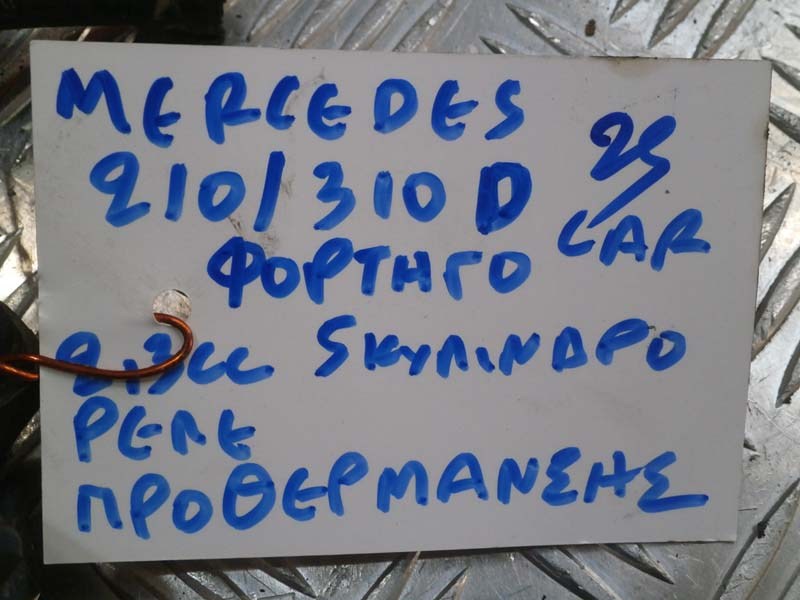 MERCEDES
210/310 D
25
CAR
ΦΟΡΤΗΓΟ
2,3CC 5ΚΥΛΙΝΔΡΟ
ΡΕΛΕ
ΠΡΟΘΕΡΜΑΝΣΗΣ